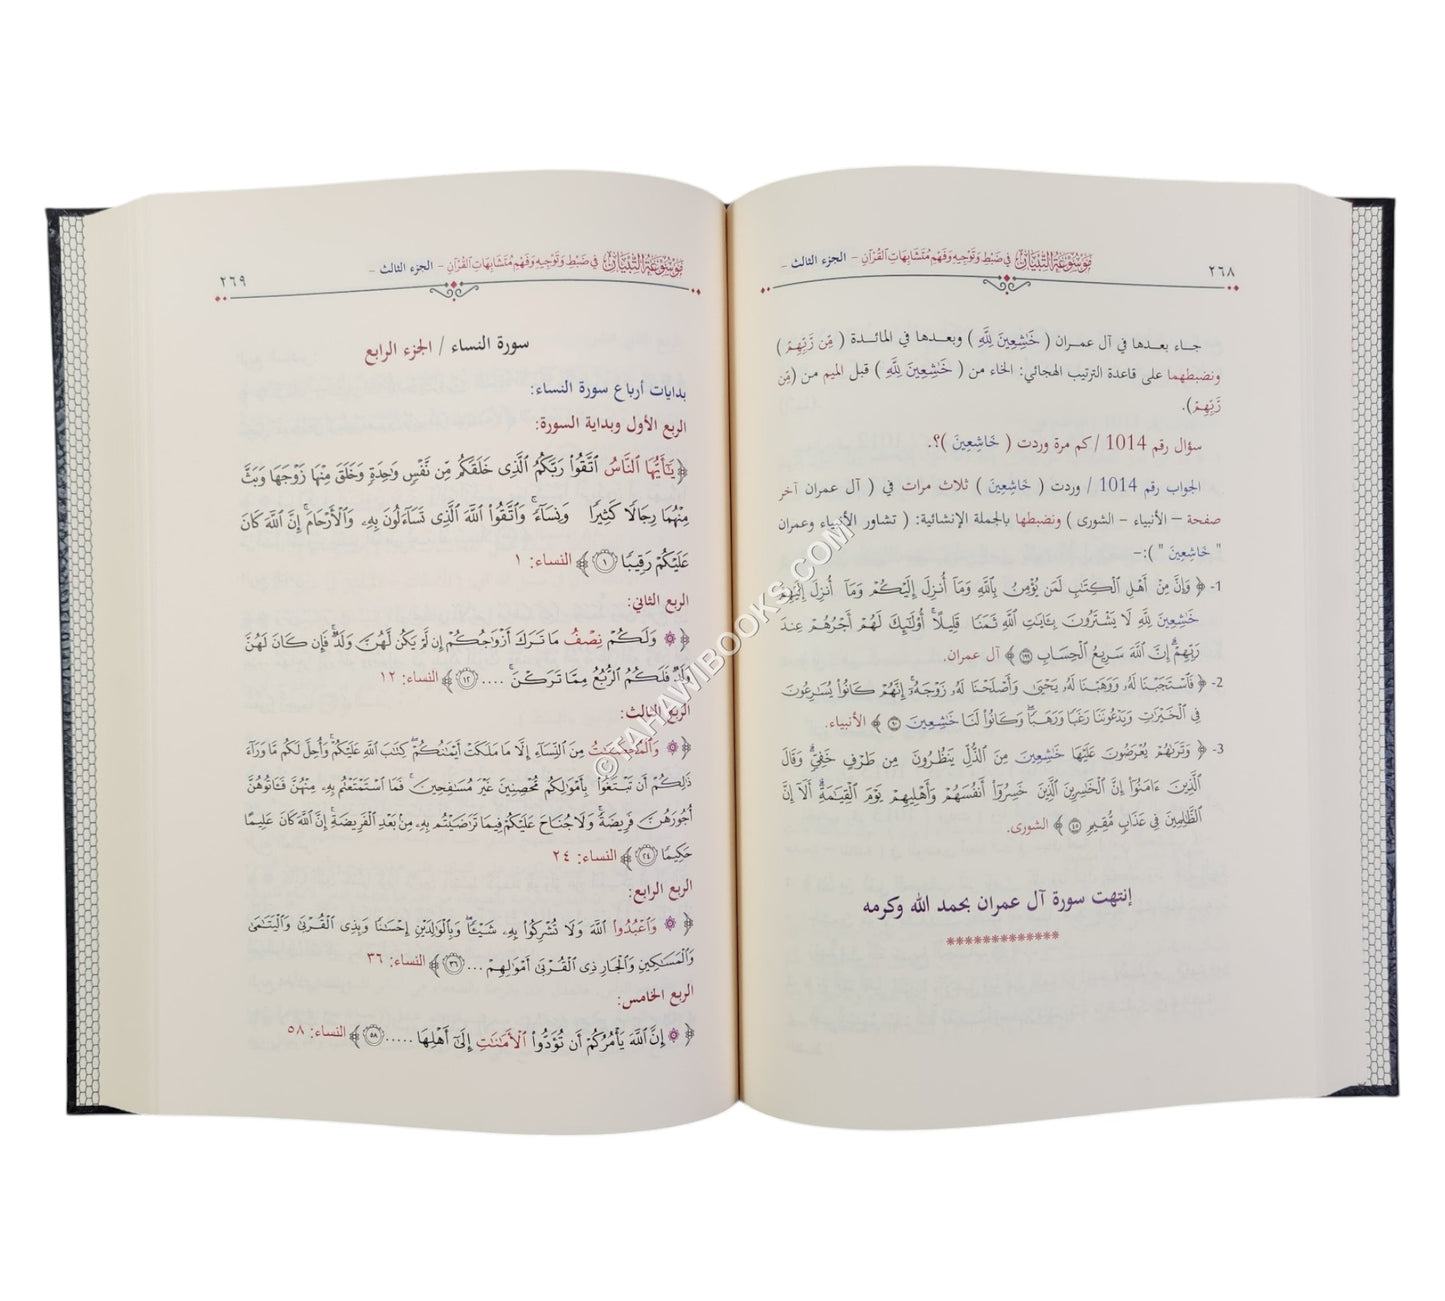 موسوعة التبيان في ضبط وتوجيه وفهم متشابهات القرآن - الجزء الثالث -
٢٦٨
جاء بعدها في آل عمران ( خَٰشِعِينَ لِلَّهِ ) وبعدها في المائدة ( مِّن رَّبِّهِمْ )
ونضبطهما على قاعدة الترتيب الهجائي: الخاء من ( خَٰشِعِينَ لِلَّهِ ) قبل الميم من (مِّن
رَّبِّهِمْ).
سؤال رقم 1014 / كم مرة وردت ( خَاشِعِينَ )؟.
الجواب رقم 1014 / وردت ( خَاشِعِينَ ) ثلاث مرات في ( آل عمران آخر
صفحة – الأنبياء – الشورى ) ونضبطها بالجملة الإنشائية: ( تشاور الأنبياء وعمران
" خَاشِعِينَ " ):–
1- ﴿ وَإِنَّ مِنْ أَهْلِ ٱلْكِتَٰبِ لَمَن يُؤْمِنُ بِٱللَّهِ وَمَآ أُنزِلَ إِلَيْكُمْ وَمَآ أُنزِلَ إِلَيْهِمْ
خَٰشِعِينَ لِلَّهِ لَا يَشْتَرُونَ بِـَٔايَٰتِ ٱللَّهِ ثَمَنًا قَلِيلًا ۗ أُو۟لَٰٓئِكَ لَهُمْ أَجْرُهُمْ عِندَ
رَبِّهِمْ ۗ إِنَّ ٱللَّهَ سَرِيعُ ٱلْحِسَابِ ١٩٩ ﴾ آل عمران.
2- ﴿ فَٱسْتَجَبْنَا لَهُۥ وَوَهَبْنَا لَهُۥ يَحْيَىٰ وَأَصْلَحْنَا لَهُۥ زَوْجَهُۥٓ ۚ إِنَّهُمْ كَانُوا۟ يُسَٰرِعُونَ
فِى ٱلْخَيْرَٰتِ وَيَدْعُونَنَا رَغَبًا وَرَهَبًا ۖ وَكَانُوا۟ لَنَا خَٰشِعِينَ ٩٠ ﴾ الأنبياء.
3- ﴿ وَتَرَىٰهُمْ يُعْرَضُونَ عَلَيْهَا خَٰشِعِينَ مِنَ ٱلذُّلِّ يَنظُرُونَ مِن طَرْفٍ خَفِىٍّ ۗ وَقَالَ
ٱلَّذِينَ ءَامَنُوٓا۟ إِنَّ ٱلْخَٰسِرِينَ ٱلَّذِينَ خَسِرُوٓا۟ أَنفُسَهُمْ وَأَهْلِيهِمْ يَوْمَ ٱلْقِيَٰمَةِ ۗ أَلَآ إِنَّ
ٱلظَّٰلِمِينَ فِى عَذَابٍ مُّقِيمٍ ٤٥ ﴾ الشورى.
إنتهت سورة آل عمران بحمد الله وكرمه
موسوعة التبيان في ضبط وتوجيه وفهم متشابهات القرآن - الجزء الثالث -
٢٦٩
سورة النساء / الجزء الرابع
بدايات أرباع سورة النساء:
الربع الأول وبداية السورة:
﴿ يَٰٓأَيُّهَا ٱلنَّاسُ ٱتَّقُوا۟ رَبَّكُمُ ٱلَّذِى خَلَقَكُم مِّن نَّفْسٍ وَٰحِدَةٍ وَخَلَقَ مِنْهَا زَوْجَهَا وَبَثَّ
مِنْهُمَا رِجَالًا كَثِيرًا وَنِسَآءً ۚ وَٱتَّقُوا۟ ٱللَّهَ ٱلَّذِى تَسَآءَلُونَ بِهِۦ وَٱلْأَرْحَامَ ۚ إِنَّ ٱللَّهَ كَانَ
عَلَيْكُمْ رَقِيبًا ١ ﴾ النساء: ١
الربع الثاني:
﴿ ۞ وَلَكُمْ نِصْفُ مَا تَرَكَ أَزْوَٰجُكُمْ إِن لَّمْ يَكُن لَّهُنَّ وَلَدٌ ۚ فَإِن كَانَ لَهُنَّ
وَلَدٌ فَلَكُمُ ٱلرُّبُعُ مِمَّا تَرَكْنَ ۚ .... ١٢ ﴾ النساء: ١٢
الربع الثالث:
﴿ ۞ وَٱلْمُحْصَنَٰتُ مِنَ ٱلنِّسَآءِ إِلَّا مَا مَلَكَتْ أَيْمَٰنُكُمْ ۖ كِتَٰبَ ٱللَّهِ عَلَيْكُمْ ۚ وَأُحِلَّ لَكُم مَّا وَرَآءَ
ذَٰلِكُمْ أَن تَبْتَغُوا۟ بِأَمْوَٰلِكُم مُّحْصِنِينَ غَيْرَ مُسَٰفِحِينَ ۚ فَمَا ٱسْتَمْتَعْتُم بِهِۦ مِنْهُنَّ فَـَٔاتُوهُنَّ
أُجُورَهُنَّ فَرِيضَةً ۚ وَلَا جُنَاحَ عَلَيْكُمْ فِيمَا تَرَٰضَيْتُم بِهِۦ مِنۢ بَعْدِ ٱلْفَرِيضَةِ ۚ إِنَّ ٱللَّهَ كَانَ عَلِيمًا
حَكِيمًا ٢٤ ﴾ النساء: ٢٤
الربع الرابع:
﴿ ۞ وَٱعْبُدُوا۟ ٱللَّهَ وَلَا تُشْرِكُوا۟ بِهِۦ شَيْـًٔا ۖ وَبِٱلْوَٰلِدَيْنِ إِحْسَٰنًا وَبِذِى ٱلْقُرْبَىٰ وَٱلْيَتَٰمَىٰ
وَٱلْمَسَٰكِينِ وَٱلْجَارِ ذِى ٱلْقُرْبَىٰ أَمْوَٰلِهِمْ ... ٣٦ ﴾ النساء: ٣٦
الربع الخامس:
﴿ ۞ إِنَّ ٱللَّهَ يَأْمُرُكُمْ أَن تُؤَدُّوا۟ ٱلْأَمَٰنَٰتِ إِلَىٰٓ أَهْلِهَا ..... ٥٨ ﴾ النساء: ٥٨
©TAHAWIBOOKS.COM